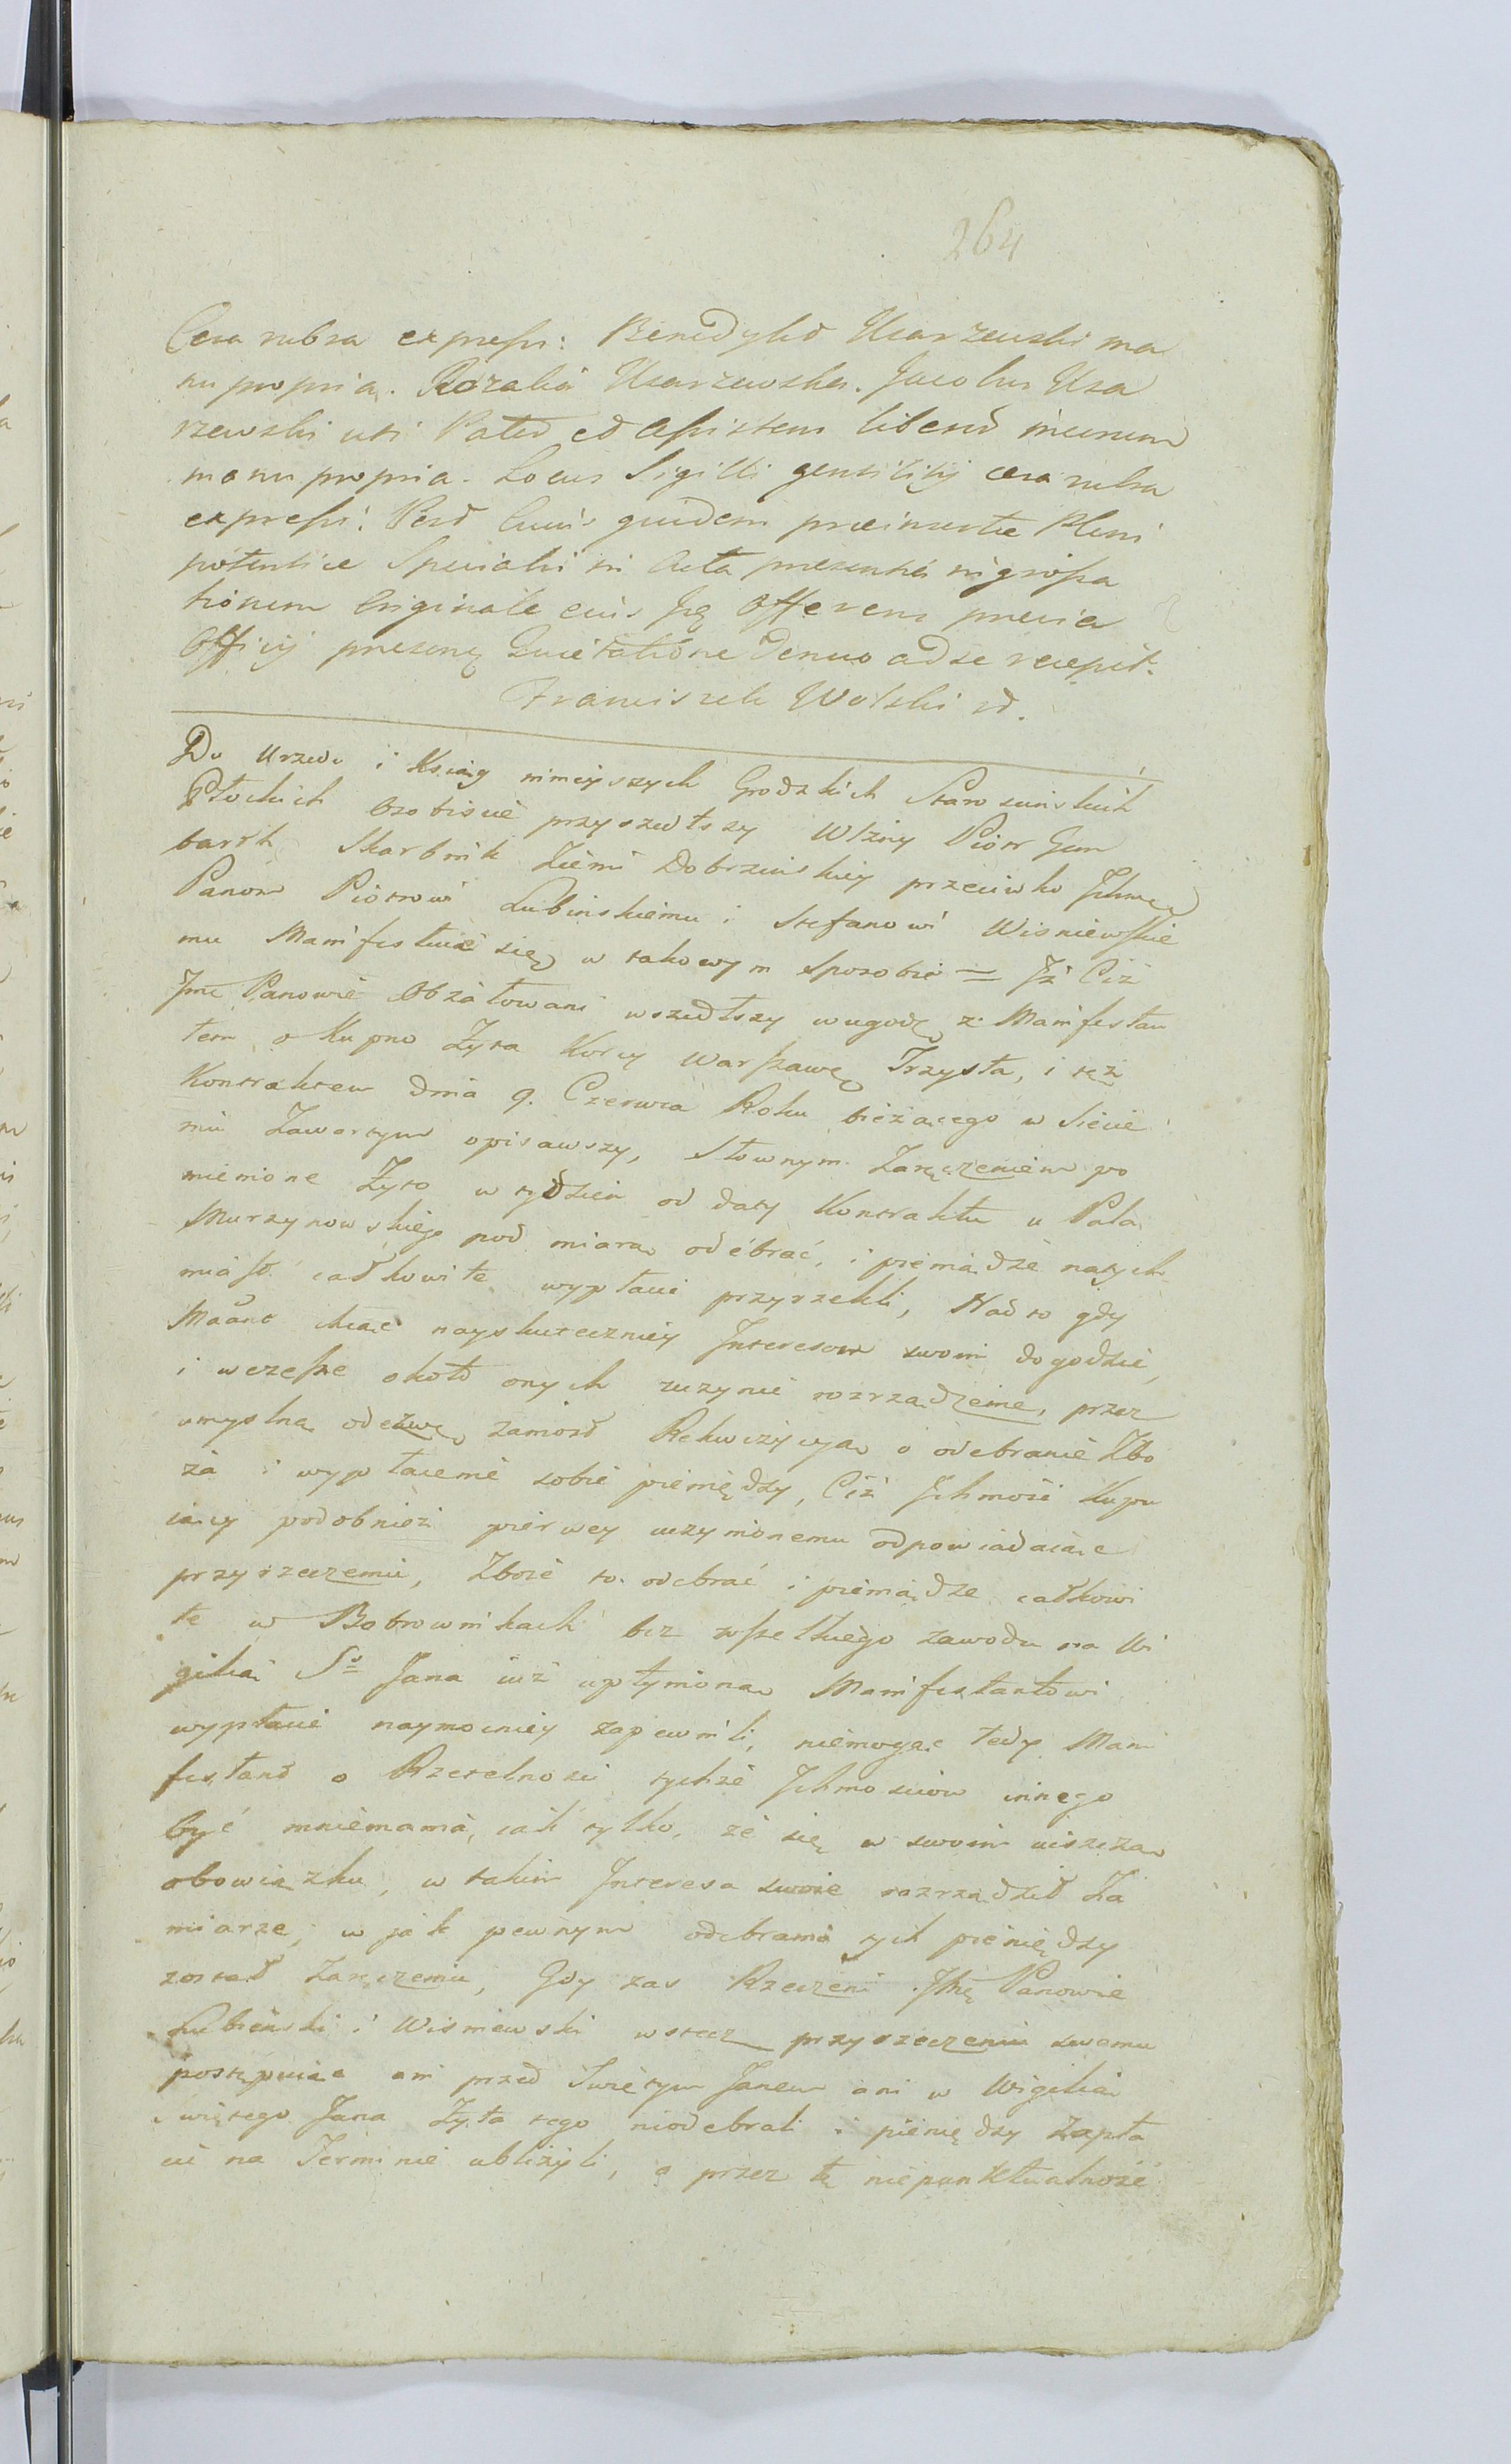 264
Cera rubra expressi: Benedykt Uzarzewski ma
nu propria. Rozalia Uzarzewska. Jacobus Uza
rzewski uti Pater et assistens liberor meorum
manu propria. Locus Sigilli gentilitij cera rubra
expressi. Post cuius quidem præinsertæ Pleni
potentiæ Specialis in Acta præsentia ingrossa
tionem Originale eius Jdę Offerens prævia
Officij præsenę Quietatione denuo ad se recepit.
Franciszek Wolski
Do Urzędu i Xsiąg ninieyszych Grodzkich Starościńskich
Płockich osobiście przyszedłszy Wżny Piotr Gum
bardt Skarbnik Ziemi Dobrzińskiey przeciwko Jchmę
Panom Piotrowi Lubińskiemu i Stefanowi Wiśniewskie
mu Manifestuie się w takowym Sposobie = Jż Ciż
Jmć Panowie Obżałowani wszedłszy w ugodę z Manifestan
tem o Kupno Żyta Korcy Warszawę Trzysta, i też
Kontraktem dnia 9. Czerwca Roku bieżącego w Siecie
mii Zawartym opisawszy, Słownym Zaręczeniem po
mienione Żyto w tydzień od daty Kontraktu u Pala
Murzynowskiego pod miarą odebrać, i pieniądze natych
miast całkowite wypłacić przyrzekli, Nad to gdy
Maant chcąc nayskuteczniey Jnteresom swoim dogodzić,
i wczesne około onych uczynić rozrządzenie, przez
umyslną odezwę zaniósł Rekwizycyą o odebranie Zbo
ża i wypłacenie sobie pieniędzy, Ciż Jchmość Kupu
iący podobnież pierwey uczynionemu odpowiadaiąc
przyrzeczeniu, Zboże to odebrać i pieniądze całkowi
te w Bobrownikach bez wszelkiego zawodu na Wi
gilią So Jana iuż upłynioną Manifestantowi
wypłacić naymocniey zapewnili, niemogąc tedy Mani
festant o Rzetelności tychże Jchmościów innego
być mniemania, iak tylko, że się w swoim uiszczą
obowiązku, w takim Jnteresa swoie rozrządził Za
miarze, w jak pewnym odebrania tych pieniędzy
został Zaręczeniu, Gdy zas Rzeczeni Jchę Panowie
Lubieński i Wiśniewski wstecz przyrzeczeniu swemu
postępuiąc ani przed Swiętym Janem ani w Wigilią
Swiętego Jana Żyta tego nieodebrali i pieniędzy Zapła
cić na Terminie ubliżyli, a przez tę niepunktualność